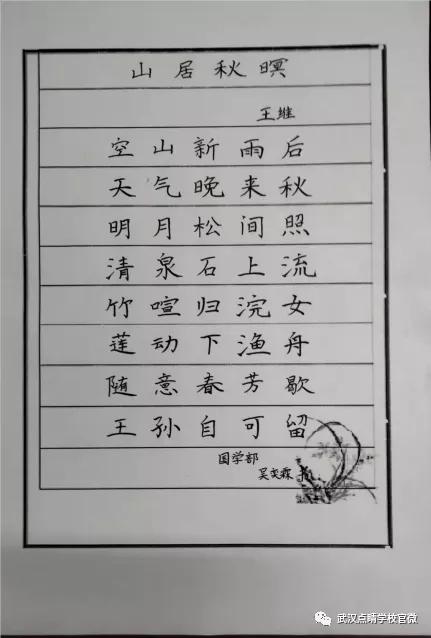 山居秋暝
王维
空山新雨后
天气晚来秋
明月松间照
清泉石上流
竹喧归浣女
莲动下渔舟
随意春芳歇
王孙自可留
国学部
吴奕霖
武汉点睛学校官微